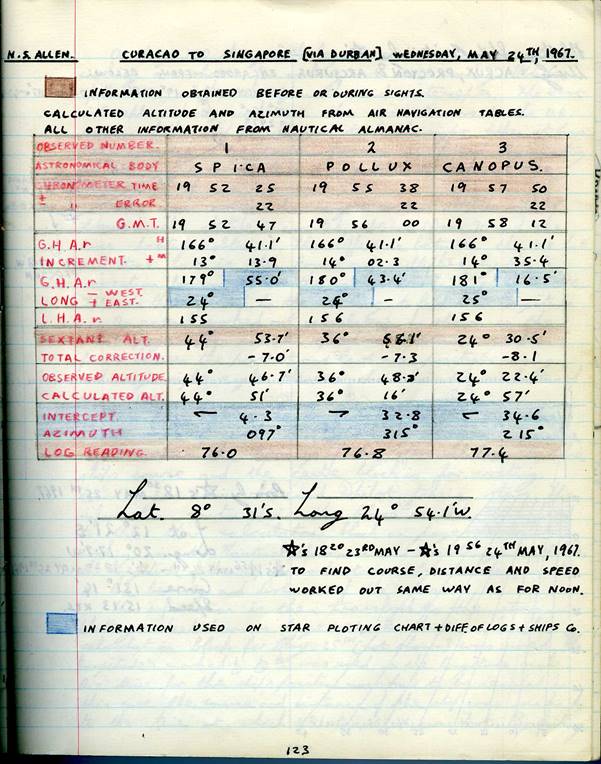 N.S. ALLEN. CURACAO TO SINGAPORE [VIA DURBAN] WEDNESDAY, MAY 24TH, 1967.
INFORMATION OBTAINED BEFORE OR DURING SIGHTS.
CALCULATED ALTITUDE AND AZIMUTH FROM AIR NAVIGATION TABLES.
ALL OTHER INFORMATION FROM NAUTICAL ALMANAC.
OBSERVED NUMBER. 1 2 3
ASTRONOMICAL BODY SPICA POLLUX CANOPUS.
CHRONOMETER TIME 19 52 25 19 55 38 19 57 50
± " ERROR. 22 22 22
G.M.T. 19 52 47 19 56 00 19 58 12
G.H.A.r H 166° 41.1' 166° 41.1' 166° 41.1'
INCREMENT. + M 13° 13.9 14° 02.3 14° 35.4
G.H.A.r 179° 55.0' 180° 43.4' 181° 16.5'
LONG - WEST. + EAST. 24° — 24° — 25° —
L.H.A.r 155 156 156
SEXTANT ALT. 44° 53.7' 36° 24° 30.5'
TOTAL CORRECTION. -7.0' -7.3 -8.1
OBSERVED ALTITUDE 44° 46.7' 36° 24° 22.4'
CALCULATED ALT. 44° 51' 36° 16' 24° 57'
INTERCEPT. 4.3 32.8 34.6
AZIMUTH 097° 315° 215°
LOG READING. 76.0 76.8 77.4
Lat. 8° 31'S. Long 24° 54.1'W.
☆'s 1820 23RD MAY – ☆'s 1956 24TH MAY, 1967.
TO FIND COURSE, DISTANCE AND SPEED
WORKED OUT SAME WAY AS FOR NOON.
INFORMATION USED ON STAR PLOTING CHART + DIFF. OF LOGS + SHIPS Co.
123